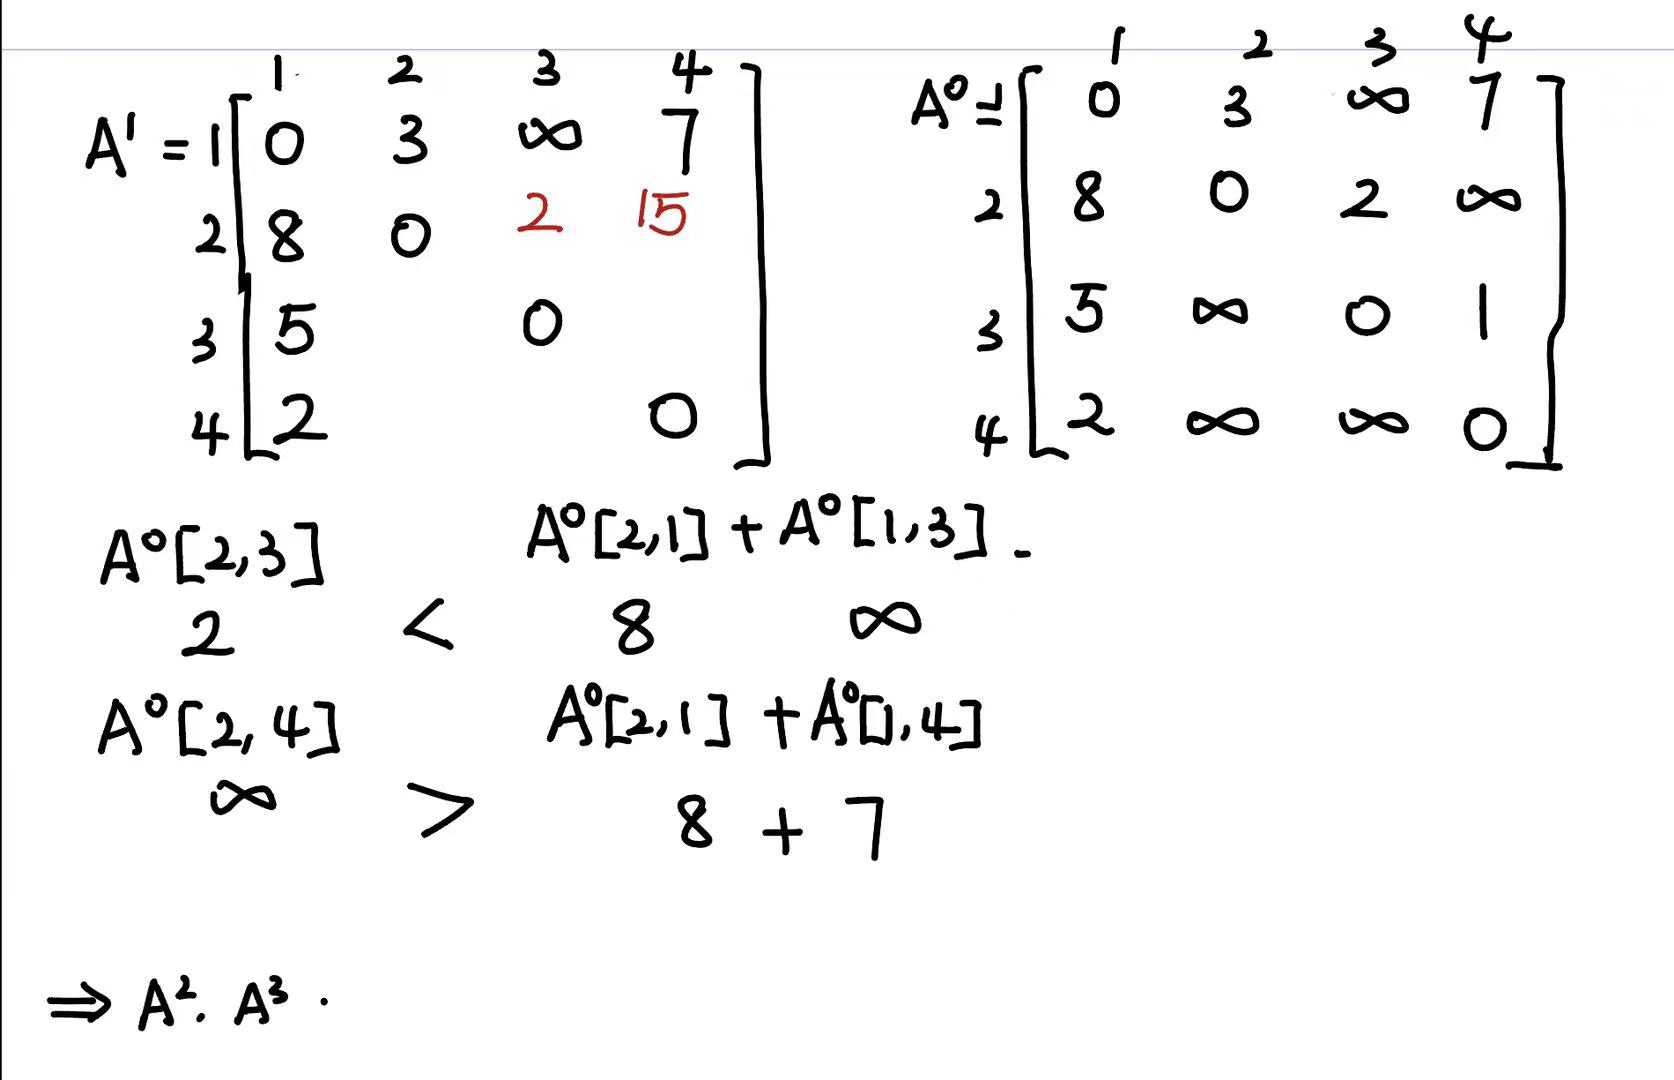 1 2 3 4
A¹ = 1 [ 0 3 ∞ 7 ]
2 8 0 2 15
3 5 0
4 2 0
1 2 3 4
A⁰ = 1 [ 0 3 ∞ 7 ]
2 8 0 2 ∞
3 5 ∞ 0 1
4 2 ∞ ∞ 0
A⁰[2,3] A⁰[2,1] + A⁰[1,3] -
2 < 8 ∞
A⁰[2,4] A⁰[2,1] + A⁰[1,4]
∞ > 8 + 7
⇒ A². A³ ·